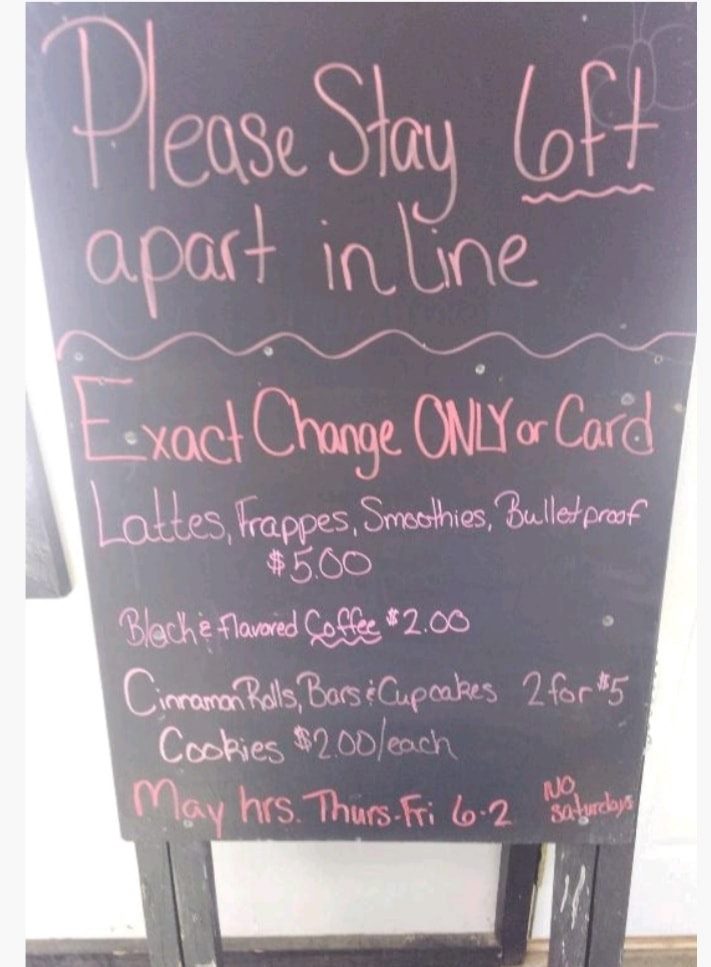 Please Stay 6ft
apart in line
Exact Change ONLY or Card
Lattes, Frappes, Smoothies, Bulletproof
$5.00
Black & Flavored Coffee $2.00
Cinnamon Rolls, Bars & Cupcakes 2 for $5
Cookies $2.00/each
May hrs. Thurs-Fri 6-2 NO
Saturdays